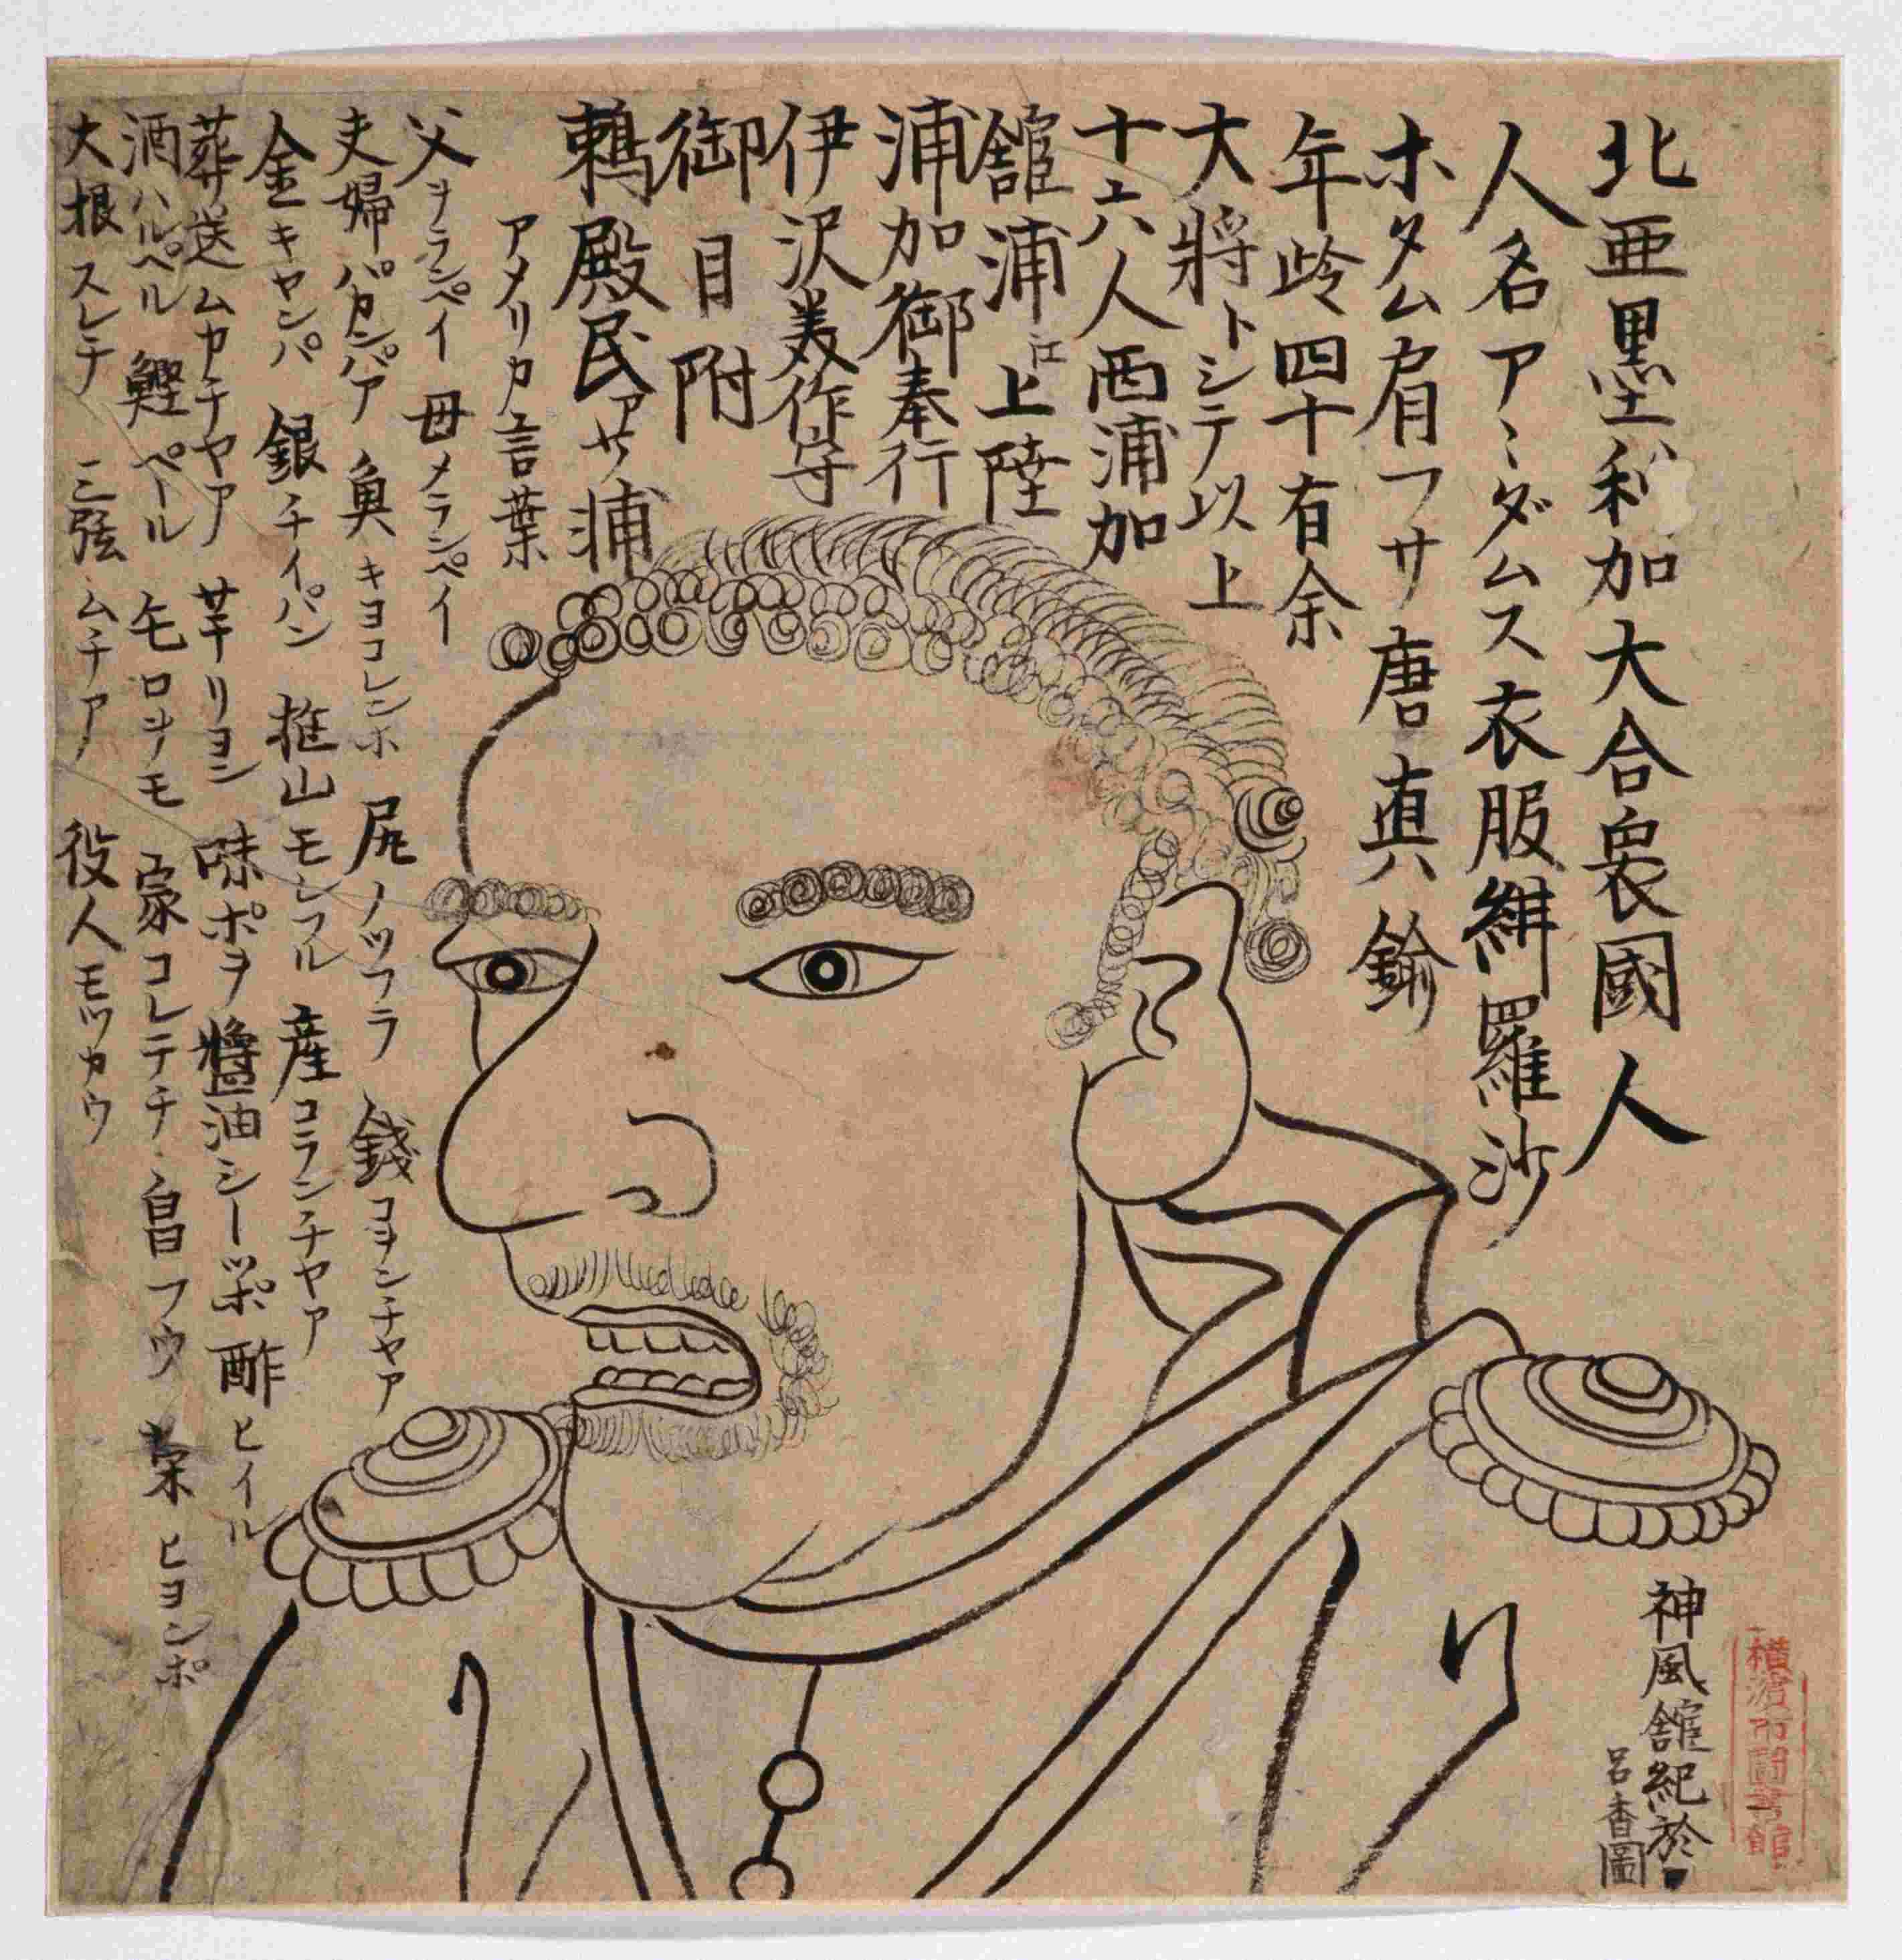 北亜墨利加大合衆國人
人名アヽダムス衣服緋羅沙
ホタム肩フサ唐真鍮
年岭四十有余
大將トシテ以上
十六人西浦加
舘浦江上陸
浦加御奉行
伊沢美作守
御目附
鵜殿民アサ浦
アメリカ言葉
父ヲランペイ 母メランペイ
夫婦パカンパア 魚キヨコレンホ 尻ノツフラ 錢コヲンチヤア
金キヤンパ 銀チイパン 推山モンフル 産コランチヤア
葬送ムカチヤア 芋リヨン 味ポヲ 醬油シーッポ 酢ヒイル
酒ハルペル 鰹ペール 毛ロヲモ 家コレテチ 自フウ 茶ヒヨンポ
大根スレチ 三弦ムチア 役人モツカウ
神風舘紀於
呂香圖
横濱市圖書館